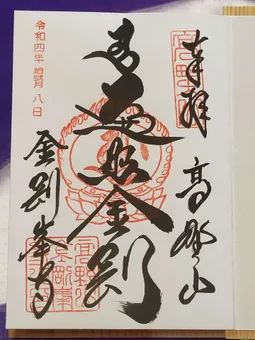 奉拝
高野山
遍照金剛
令和四年 月八日
金剛峯寺